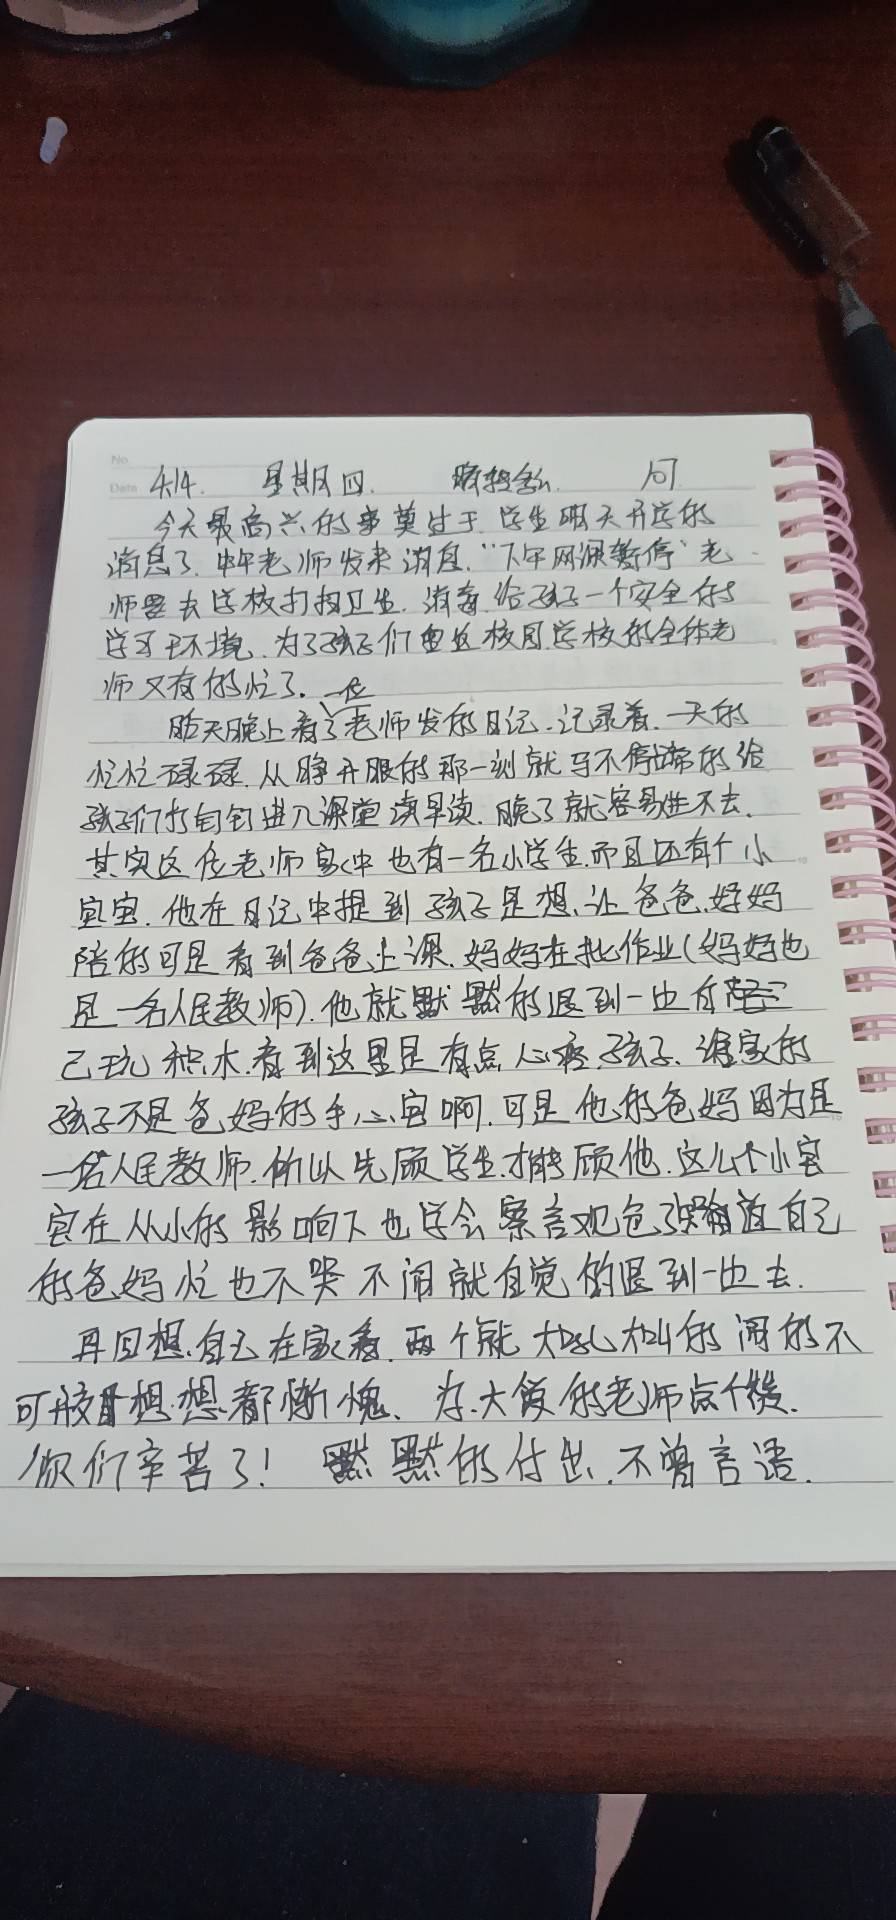 No.
Date 4.14. 星期四. 晴转多云. 问
今天最高兴的事莫过于.学生明天开学的
消息了.中午老师发来消息."下午网课暂停"老
师要去学校打扫卫生.消毒.给孩子一个安全的
学习环境.为了孩子们重返校园学校的全体老
师又有的忙了.
昨天晚上看了一位老师发的日记.记录着.一天的
忙忙碌碌.从睁开眼的那一刻就马不停蹄的给
孩子们打钉钉进入课堂读早读.晚了就容易进不去.
其实这位老师家中也有一名小学生.而且还有个小
宝宝.他在日记中提到孩子是想.让爸爸.妈妈
陪的可是看到爸爸上课.妈妈在批作业(妈妈也
是一名人民教师).他就默默的退到一边自
己玩积木.看到这里是有点心疼.孩子.谁家的
孩子不是爸妈的手心宝啊.可是他的爸妈因为是
一名人民教师.所以先顾学生.才能顾他.这么个小宝
宝在从小的影响下也学会察言观色了知道自己
的爸妈忙也不哭不闹就自觉的退到一边去.
再回想.自己在家看.两个就大吼大叫的闹的不
可开交想想都惭愧、为.大饭的老师点个赞.
你们辛苦了! 默默的付出.不曾言语.